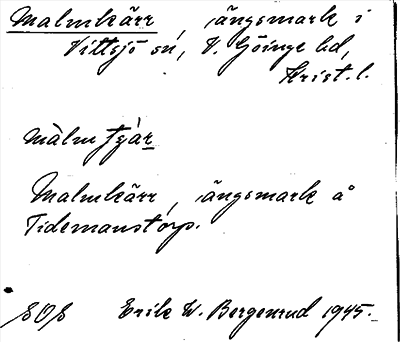 Malmkärr, ängsmark i
Vittsjö sn, V. Göinge hd,
Krist. l.
màlm tʒár
Malmkärr, ängsmark å
Tidemanstorp.
SOS Erik W. Bergenrud 1945.